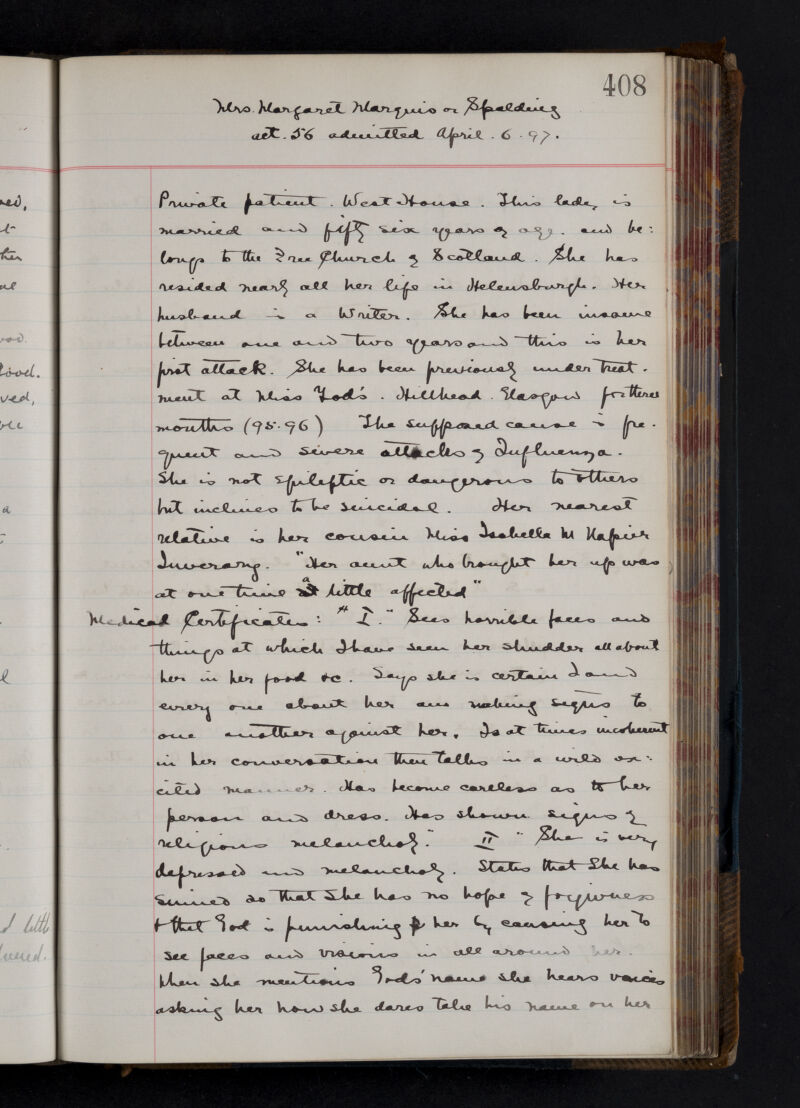 408
Mrs. Margaret Marquis or Spalding
aet. 56 admitted April. 6. 97.
Private patient. West House. This lady is
married and fifty six years of age. and be:
longs to the Free Church of Scotland. She has
resided nearly all her life in Helensburgh. Her
husband is a Writer. She has been insane
between one and two years and this is her
first attack. She has been previously under treat.
ment at Miss Hillhead. Glasgow for three
months (95-96) The supposed cause is fre.
quent and severe attacks of Influenza.
She is not epileptic or dangerous to others
but inclines to be suicidal. Her nearest
relative is her cousin Miss Isabella M Napier
Inveraray. "Her aunt who brought her up was
at one time a little affected"
Medical Certificates: "I." Sees horrible faces and
things at which I have seen her shudder all about
her in her food &c. Says she is certain I and
every one about her are making signs to
one another against her. Is at times incoherent
in her conversation then talks in a wild ex:
cited manner. Has become careless as to her
person and dress. Has shown signs of
religious melancholy." II "She is very
depressed and melancholy. States that She has
sinned so that She has no hope of forgiveness
& that God is punishing her by causing her to
see faces and visions in all around her.
When she mentions God's name she hears voices
asking her how she dares take his name on her